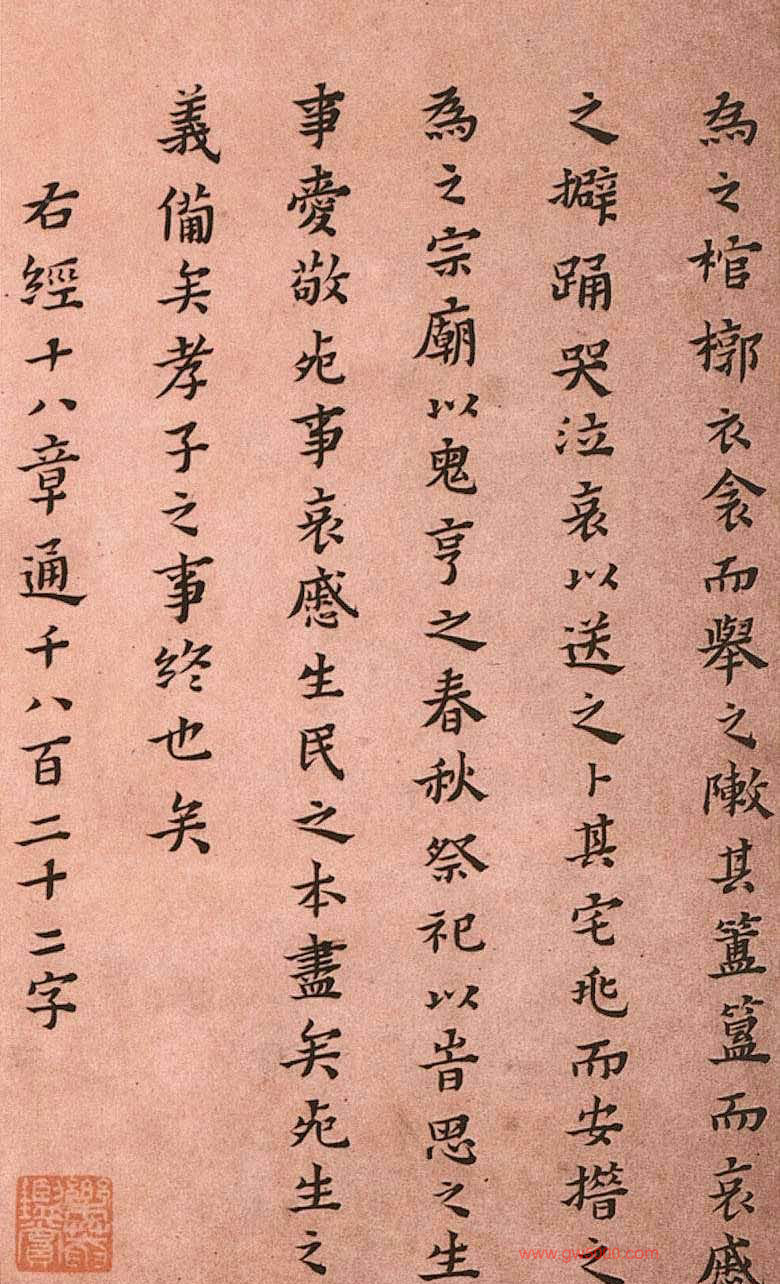 為之棺槨衣衾而舉之陳其簠簋而哀戚
之擗踊哭泣哀以送之卜其宅兆而安措之
為之宗廟以鬼享之春秋祭祀以時思之生
事愛敬死事哀戚生民之本盡矣死生之
義備矣孝子之事終也矣
右經十八章通千八百二十二字
www.gw5000.com